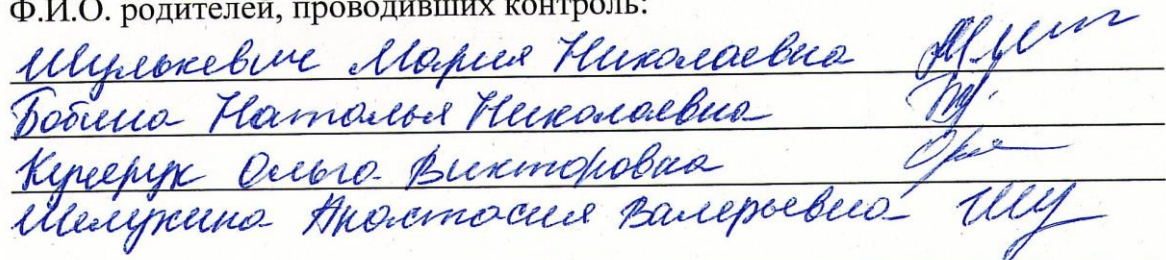 Ф.И.О. родителей, проводивших контроль:
Шулькевич Мария Николаевна
Бобина Наталья Николаевна
Кучерук Ольга Викторовна
Шелухина Анастасия Валерьевна